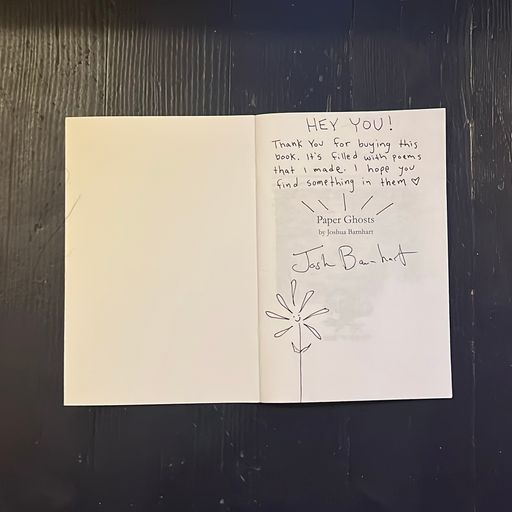 HEY YOU!
Thank You for buying this
book. It's filled with poems
that I made. I hope you
find something in them ♡
Paper Ghosts
by Joshua Barnhart
Josh Barnhart